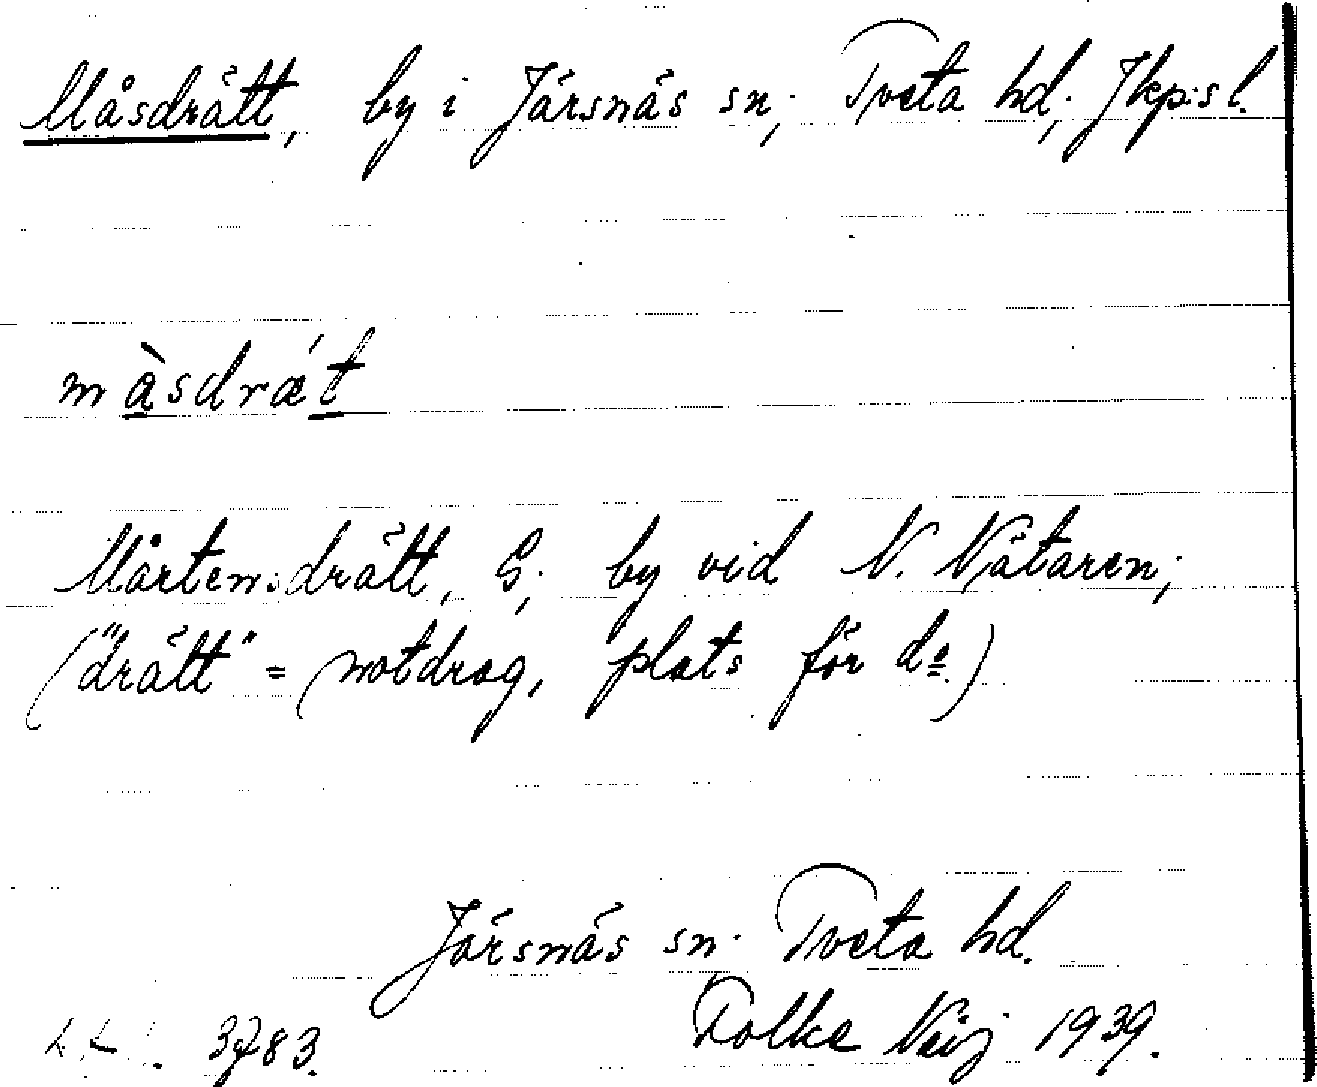 Måsdrätt, by i Järsnäs sn, Tveta hd, Jkp:s l.
màsdrǽt
Mårtensdrätt, G, by vid N. Nätaren,
("drätt" = notdrag, plats för do.)
Järsnäs sn. Tveta hd.
3783. Folke 1939.